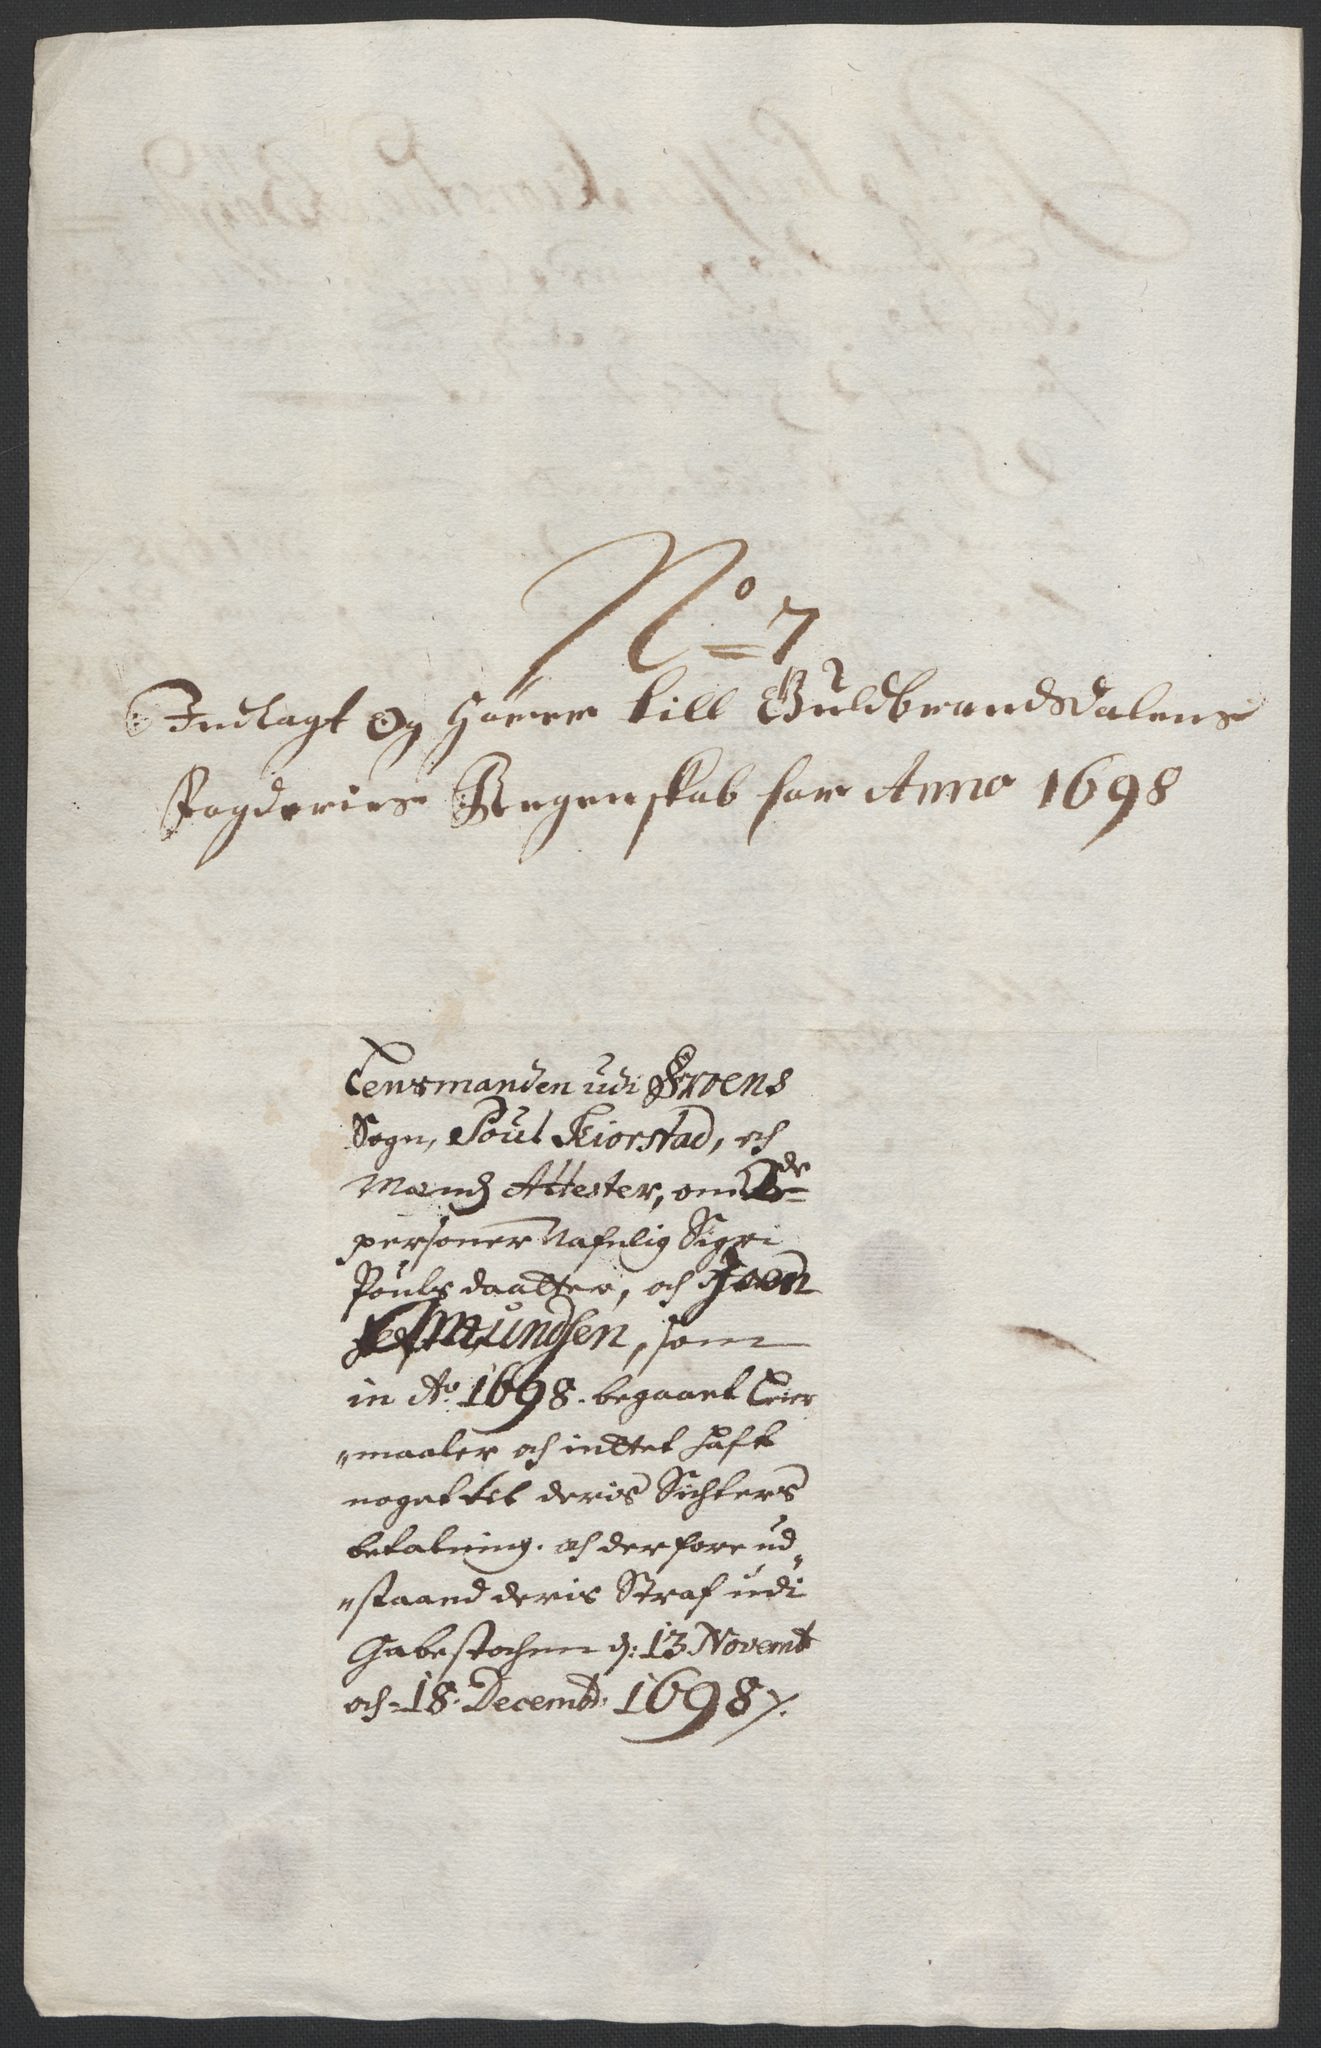 No 7
Indlagt og Hører till Guldbrandsdalens
Fogderies Regenskab for Anno 1698
Lensmanden udi Froens
Sogn, Poul Kiorstad, och
Mænds Attester, om 2de
personer Nafnlig Sigri
Poulsdaatter, och Joen
Amundsen, som
in Ao 1698. begaaet Leier
"maaler och inttet hafft
noget til deris Sichters
betalning. och derfore ud"
"staaed deris Straf udi
Gabestochen d: 13 Novemb
och 18. Decemb: 1698 /.